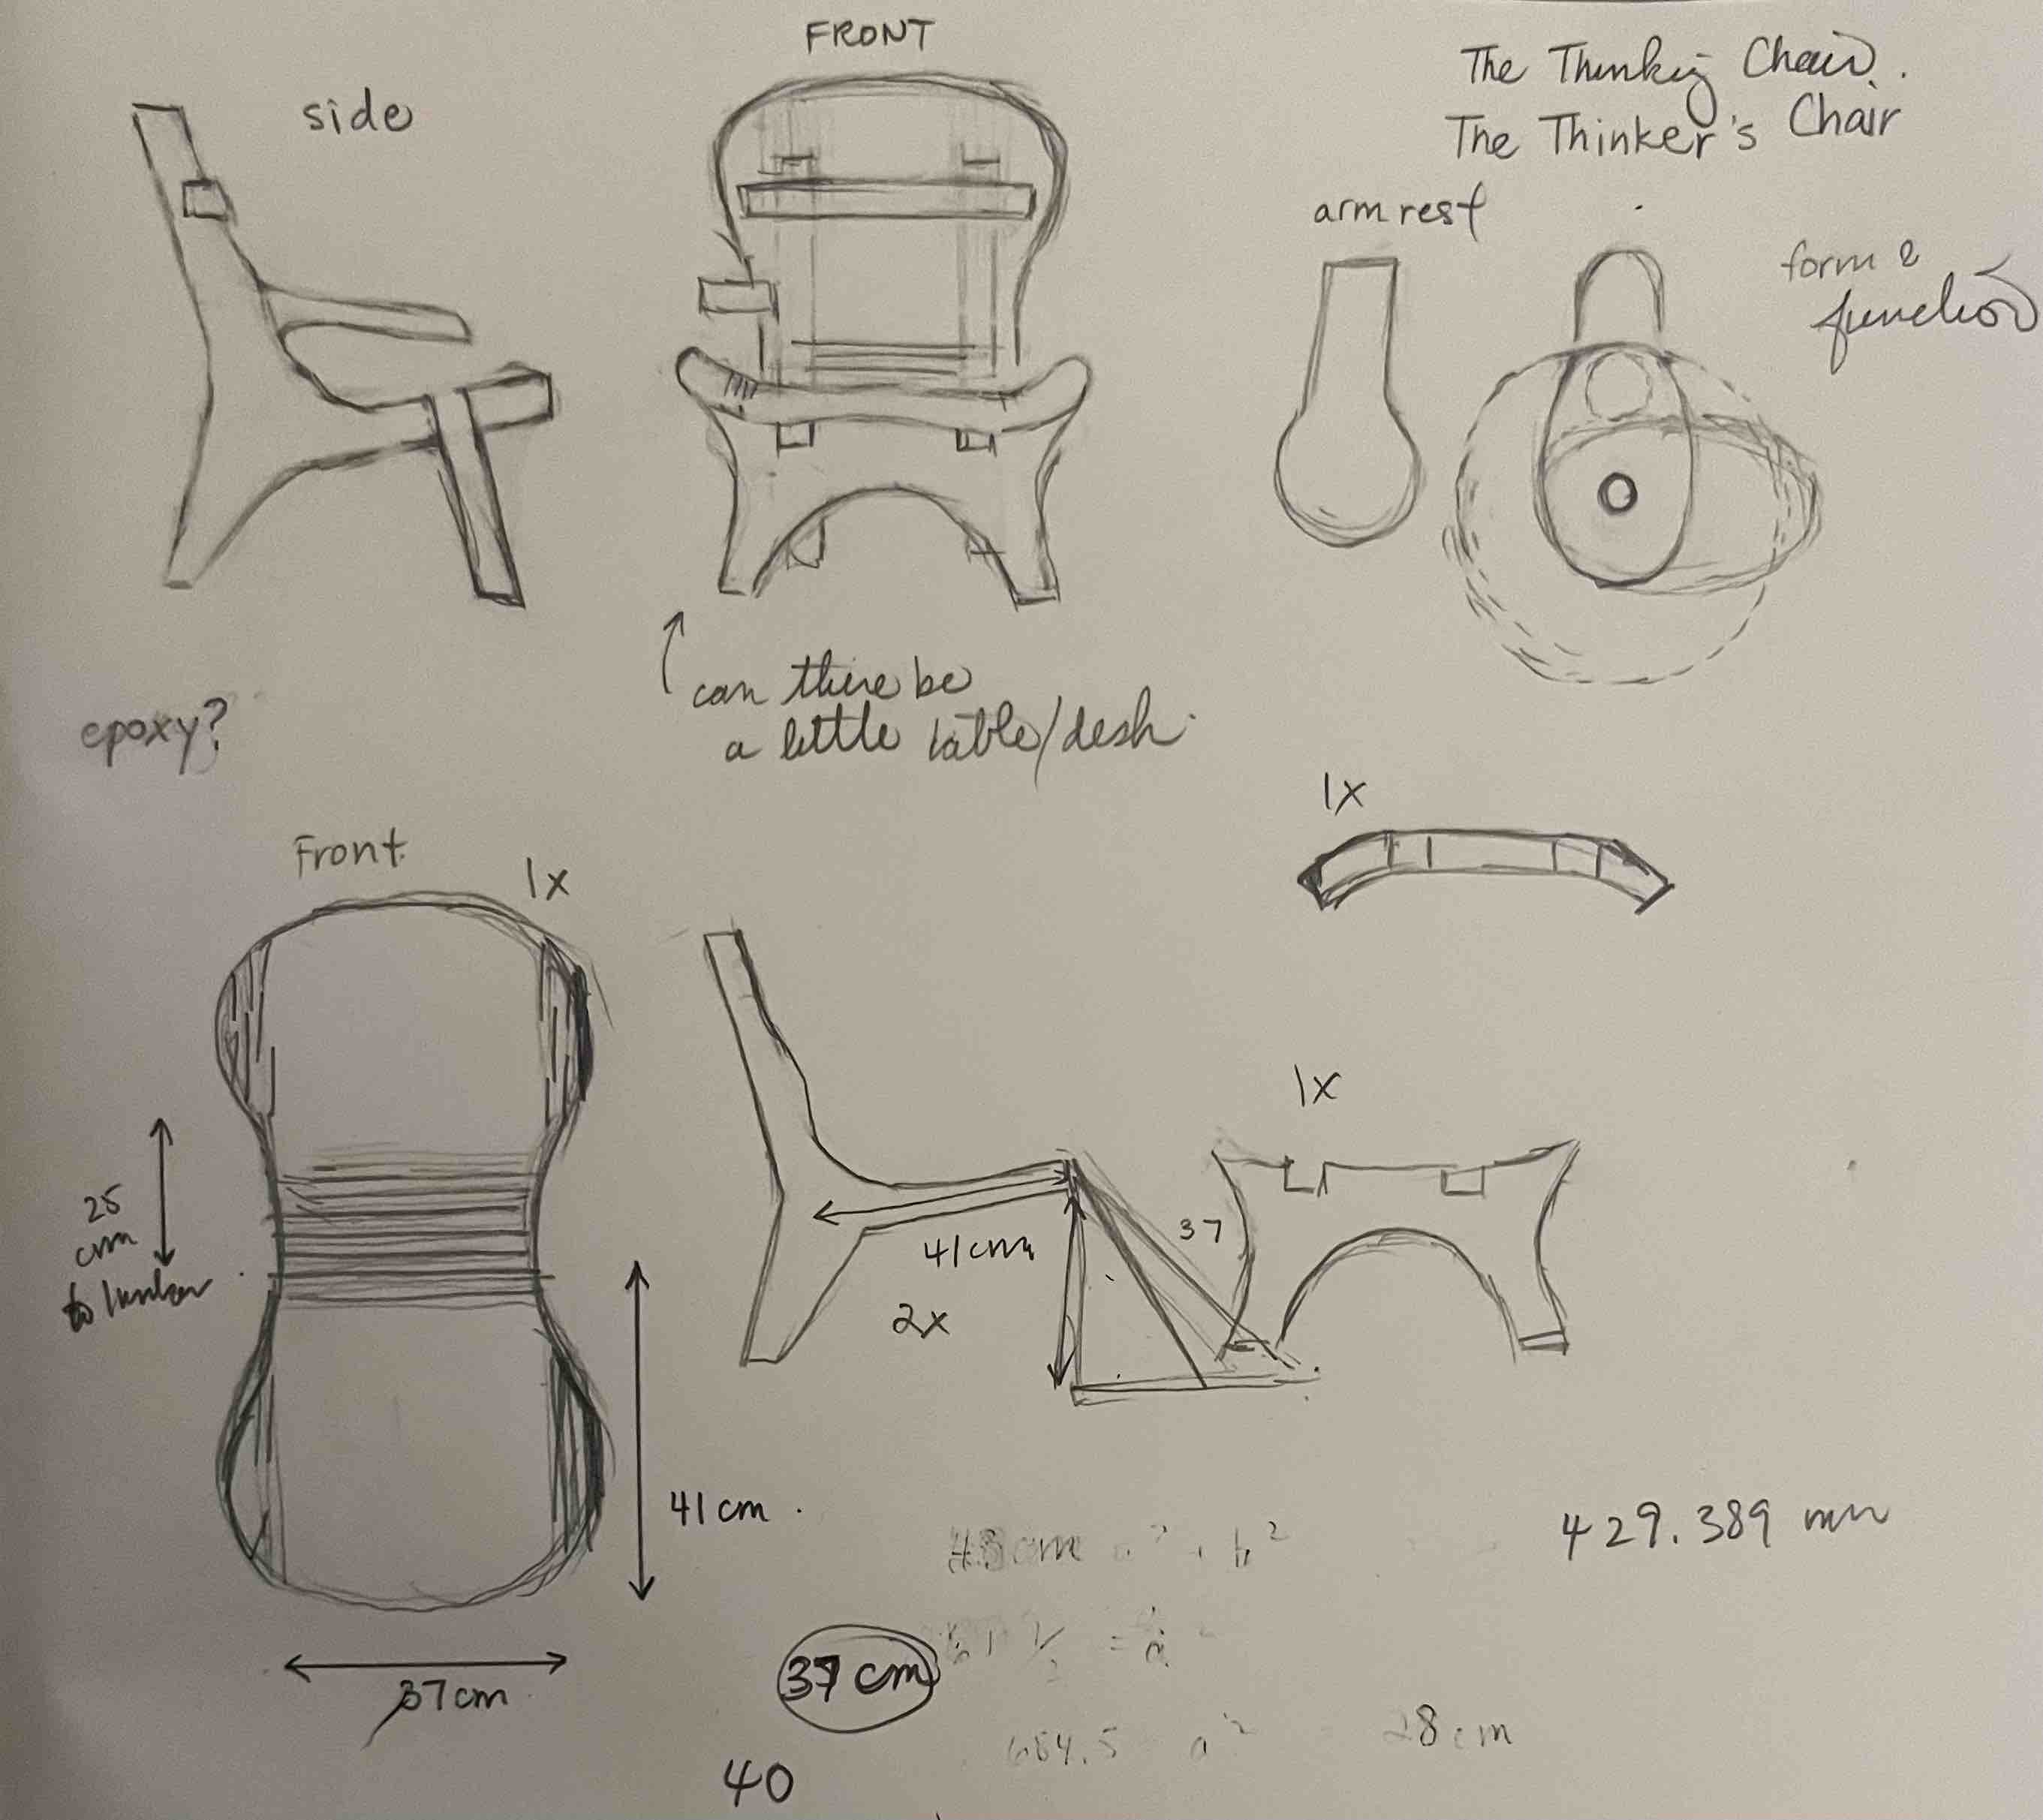 FRONT
side
The Thinkig Chair.
The Thinker's Chair
arm rest
form &
function
can there be
a little table/desk.
epoxy?
1x
Front.
1x
25
cm
to lumbar
1x
41cm
37
2x
41cm.
429.389 mm
37cm
37 cm
28cm
654.5 a²
40